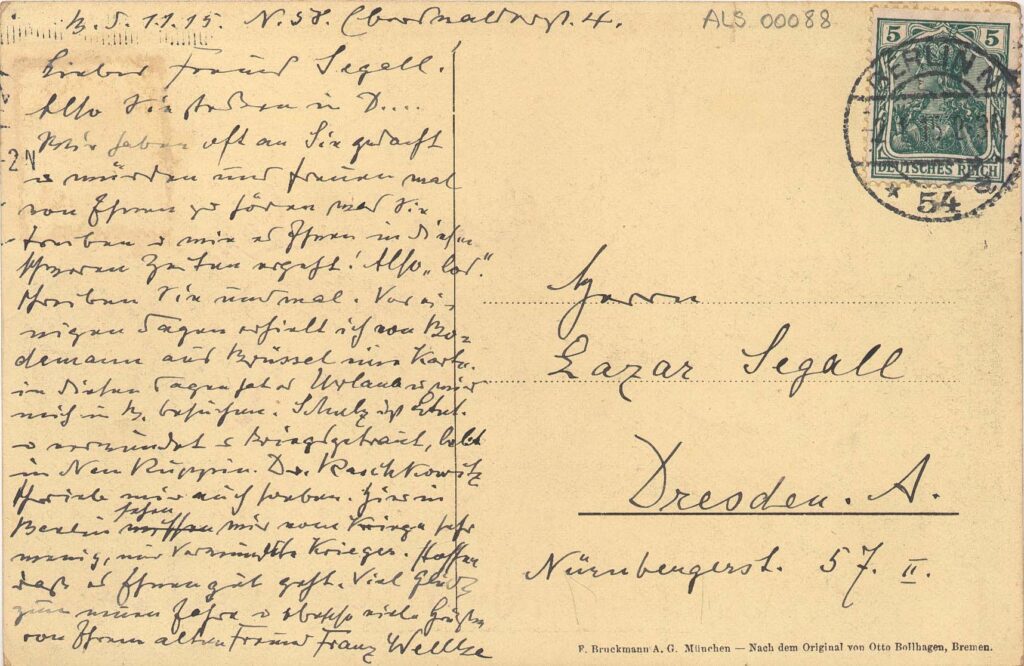 B. d. 1.1.15. N.58. Eberswalderst. 4.
ALS 00088
Lieber Freund Segall.
Also Sie stecken in D....
Wir haben oft an Sie gedacht
u würden uns freuen mal
von Ihnen zu hören was Sie
treiben u wie es Ihnen in diesen
schweren Zeiten ergeht! Also „los".
schreiben Sie uns mal. Vor ei-
nigen Tagen erhielt ich von Bo-
demann aus Brüssel eine Karte.
in diesen Tagen hat er Urlaub u wird
mich in B. besuchen. Schulz ist
u verwundet u Kriegsgetraut, lebt
in Neu Ruppin. Dr. Raschkowitz
schrieb mir auch soeben. Hier in
sehen
Berlin wir vom Kriege sehr
wenig, nur verwundete Krieger. Hoffen
daß es Ihnen gut geht. Viel Glück
zum neuen Jahre u ebenso viele Grüße
von Ihrem alten Freund Franz
5 5
DEUTSCHES REICH
BERLIN N.
* 54
2 N
Herrn
Lazar Segall
Dresden. A.
Nürnbergerst. 57. II.
F. Bruckmann A. G. München — Nach dem Original von Otto Bollhagen, Bremen.